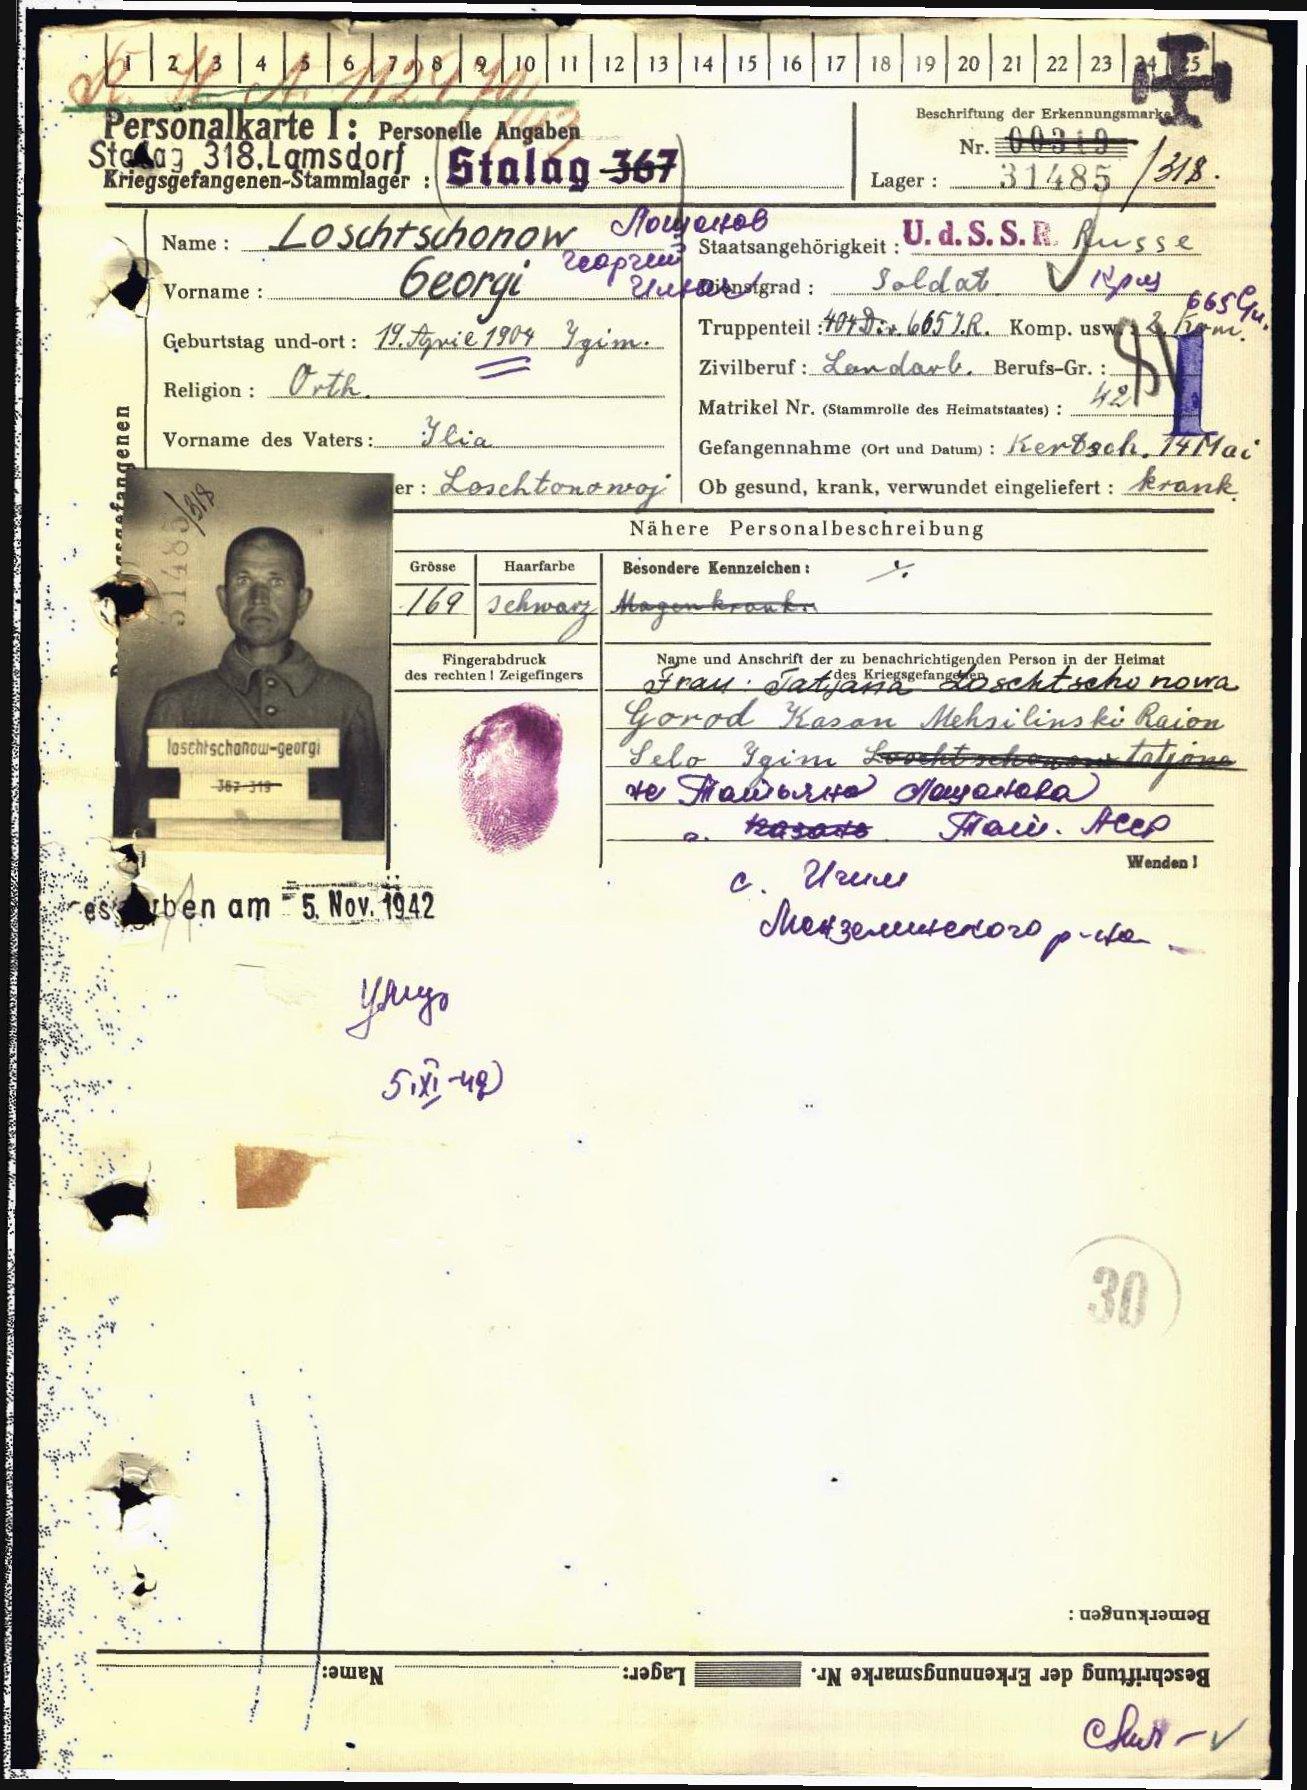 1 2 3 4 5 6 7 8 9 10 11 12 13 14 15 16 17 18 19 20 21 22 23 24 25
Personalkarte I: Personelle Angaben
Stalag 318. Lamsdorf
Kriegsgefangenen-Stammlager: Stalag 367
Beschriftung der Erkennungsmarke
Nr. 00319
Lager: 31485 / 318.
Name: Loschtschonow Лощонов
Vorname: Georgi Георгий
Geburtstag und-ort: 19. April 1904 Igim.
Religion: Orth.
Vorname des Vaters: Ilia
er: Loschtonowoj
Staatsangehörigkeit: U.d.S.S.R. Russe
Dienstgrad: Soldat
Truppenteil: 404 Div. 665 J.R. Komp. usw.: 2. Kom.
Zivilberuf: Landarb. Berufs-Gr.:
Matrikel Nr. (Stammrolle des Heimatstaates):
42
Gefangennahme (Ort und Datum): Kertsch. 14 Mai
Ob gesund, krank, verwundet eingeliefert: krank.
gsgefangenen
Nähere Personalbeschreibung
Grösse Haarfarbe Besondere Kennzeichen:
169 schwarz Magenkrank.
Fingerabdruck
des rechten! Zeigefingers
Name und Anschrift der zu benachrichtigenden Person in der Heimat
des Kriegsgefangenen
Frau: Tatjana Loschtschonowa
Gorod Kasan Mehsilinski Raion
Selo Igim Loschtschonowa Tatjana
Татьяна Лощонова
г. Казань Тат. АССР
Wenden!
с. Игим
Мензелинского р-на
31485/318
loschtschonow-georgi
367 319
estorben am 5. Nov. 1942
5.XI-42
30
Bemerkungen:
Beschriftung der Erkennungsmarke Nr. Lager: Name: